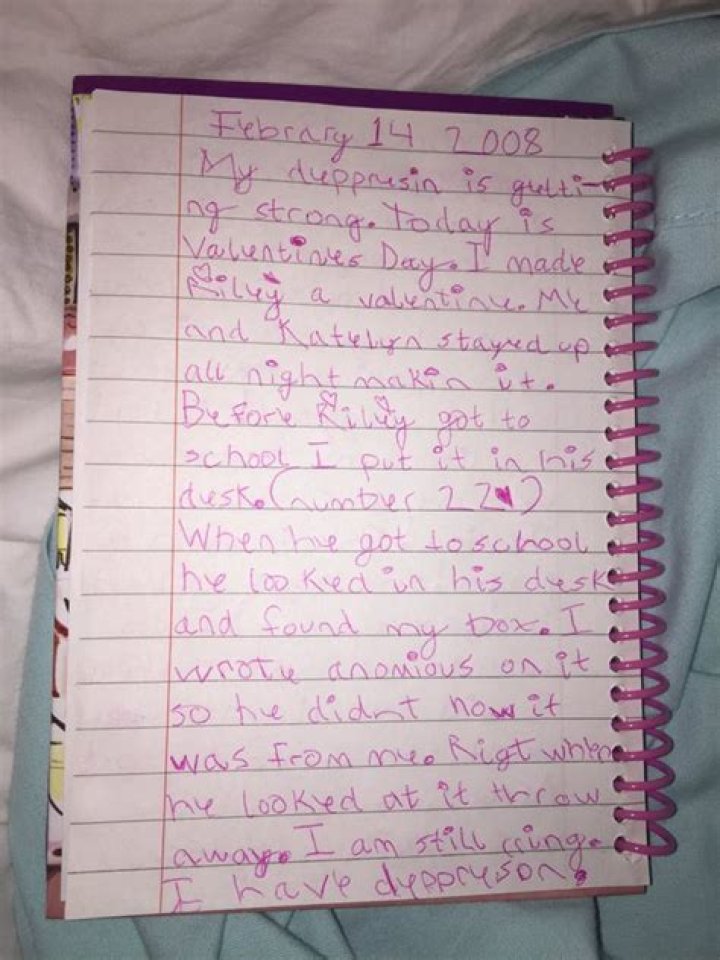 Febrary 14 2008
My deppresin is getti-
ng strong. Today is
Valentines Day. I made
Riley a valentine. Me
and Katelyn stayed up
all night makin it.
Before Riley got to
school I put it in his
desk. (number 22♥)
When he got to school
he looked in his desk
and found my box. I
wrote anomious on it
so he didnt now it
was from me. Rigt when
he looked at it throw
away. I am still criing.
I have deppreson.